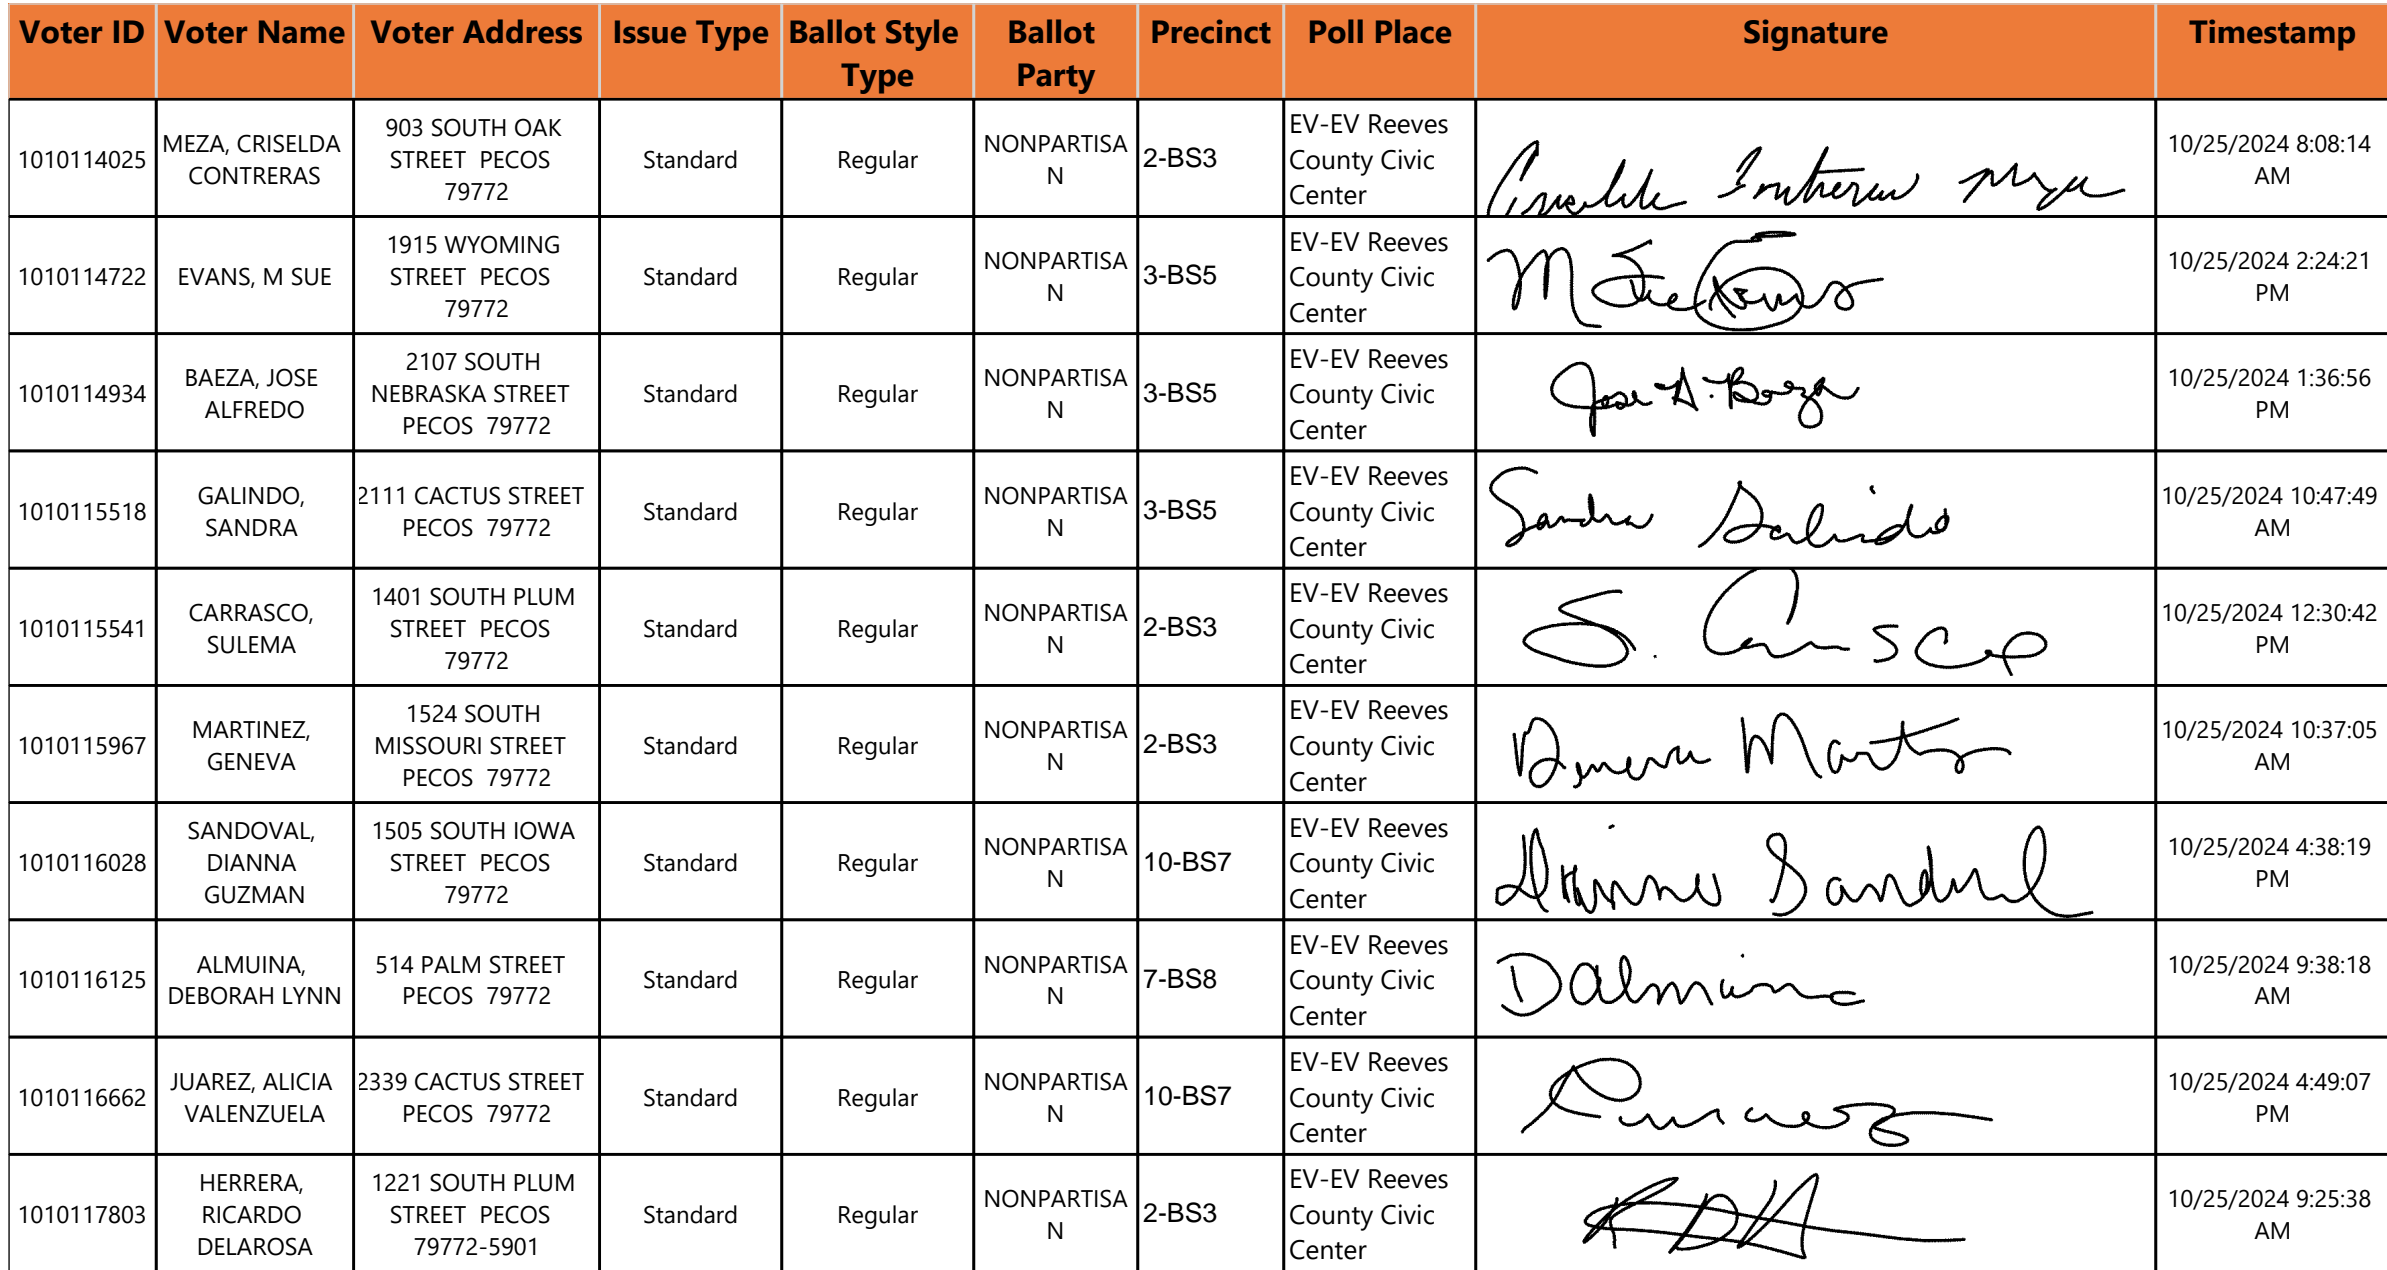 Voter ID Voter Name Voter Address Issue Type Ballot Style Type Ballot Party Precinct Poll Place Signature Timestamp
1010114025 MEZA, CRISELDA CONTRERAS 903 SOUTH OAK STREET PECOS 79772 Standard Regular NONPARTISAN 2-BS3 EV-EV Reeves County Civic Center 10/25/2024 8:08:14 AM
1010114722 EVANS, M SUE 1915 WYOMING STREET PECOS 79772 Standard Regular NONPARTISAN 3-BS5 EV-EV Reeves County Civic Center M Sue Evans 10/25/2024 2:24:21 PM
1010114934 BAEZA, JOSE ALFREDO 2107 SOUTH NEBRASKA STREET PECOS 79772 Standard Regular NONPARTISAN 3-BS5 EV-EV Reeves County Civic Center Jose A. Baeza 10/25/2024 1:36:56 PM
1010115518 GALINDO, SANDRA 2111 CACTUS STREET PECOS 79772 Standard Regular NONPARTISAN 3-BS5 EV-EV Reeves County Civic Center Sandra Galindo 10/25/2024 10:47:49 AM
1010115541 CARRASCO, SULEMA 1401 SOUTH PLUM STREET PECOS 79772 Standard Regular NONPARTISAN 2-BS3 EV-EV Reeves County Civic Center S. 10/25/2024 12:30:42 PM
1010115967 MARTINEZ, GENEVA 1524 SOUTH MISSOURI STREET PECOS 79772 Standard Regular NONPARTISAN 2-BS3 EV-EV Reeves County Civic Center 10/25/2024 10:37:05 AM
1010116028 SANDOVAL, DIANNA GUZMAN 1505 SOUTH IOWA STREET PECOS 79772 Standard Regular NONPARTISAN 10-BS7 EV-EV Reeves County Civic Center Dianna Sandoval 10/25/2024 4:38:19 PM
1010116125 ALMUINA, DEBORAH LYNN 514 PALM STREET PECOS 79772 Standard Regular NONPARTISAN 7-BS8 EV-EV Reeves County Civic Center DAlmuina 10/25/2024 9:38:18 AM
1010116662 JUAREZ, ALICIA VALENZUELA 2339 CACTUS STREET PECOS 79772 Standard Regular NONPARTISAN 10-BS7 EV-EV Reeves County Civic Center 10/25/2024 4:49:07 PM
1010117803 HERRERA, RICARDO DELAROSA 1221 SOUTH PLUM STREET PECOS 79772-5901 Standard Regular NONPARTISAN 2-BS3 EV-EV Reeves County Civic Center RDH 10/25/2024 9:25:38 AM